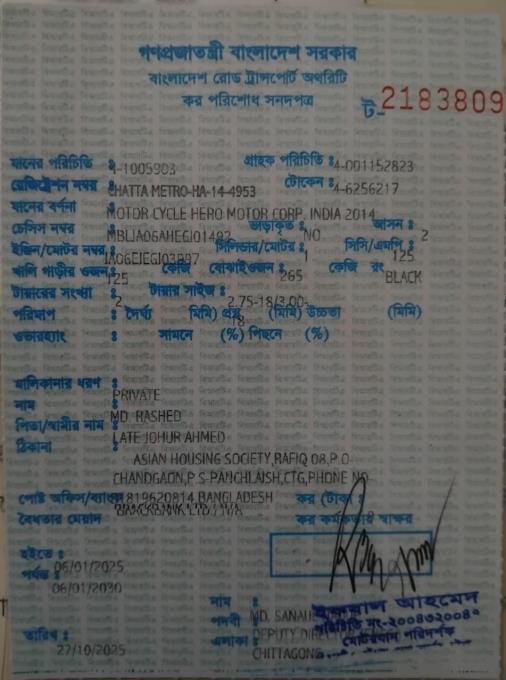 গণপ্রজাতন্ত্রী বাংলাদেশ সরকার
বাংলাদেশ রোড ট্রান্সপোর্ট অথরিটি
কর পরিশোধ সনদপত্র
ট-2183809
যানের পরিচিতি : 4-1005903 গ্রাহক পরিচিতি : 4-001152823
রেজিস্ট্রেশন নম্বর : CHATTA METRO-HA-14-4953 টোকেন : 4-6256217
যানের বর্ণনা : MOTOR CYCLE HERO MOTOR CORP. INDIA 2014
চেসিস নম্বর : MBLJA06AHEGJ01492 ভাড়াকৃত : NO আসন : 2
ইঞ্জিন/মোটর নম্বর : JA06EJEGJ03897 সিলিন্ডার/মোটর : 1 সিসি/এমপি : 125
খালি গাড়ীর ওজন : 125 কেজি বোঝাইওজন : 265 কেজি রং BLACK
টায়ারের সংখ্যা : 2 টায়ার সাইজ : 2.75-18/3.00-18
পরিমাপ : দৈর্ঘ্য (মিমি) প্রস্থ (মিমি) উচ্চতা (মিমি)
ওভারহ্যাং : সামনে (%) পিছনে (%)
মালিকানার ধরণ : PRIVATE
নাম : MD. RASHED
পিতা/স্বামীর নাম : LATE JOHUR AHMED
ঠিকানা : ASIAN HOUSING SOCIETY,RAFIQ 08,P.O-
CHANDGAON,P.S-PANCHLAISH,CTG,PHONE NO-
01819620814,BANGLADESH
পোষ্ট অফিস/ব্যাংক কর (টাকা) :
বৈধতার মেয়াদ কর কর্মকর্তার স্বাক্ষর
হইতে : 06/01/2025
পর্যন্ত : 06/01/2030
নাম : MD. SANAU
পদবী : DEPUTY DIRECTOR
এলাকা : CHITTAGONG
তারিখ : 27/10/2025
ইকবাল আহমেদ
পরিচিতি নং-২০০৪৩২০০৪০
মোটরযান পরিদর্শক